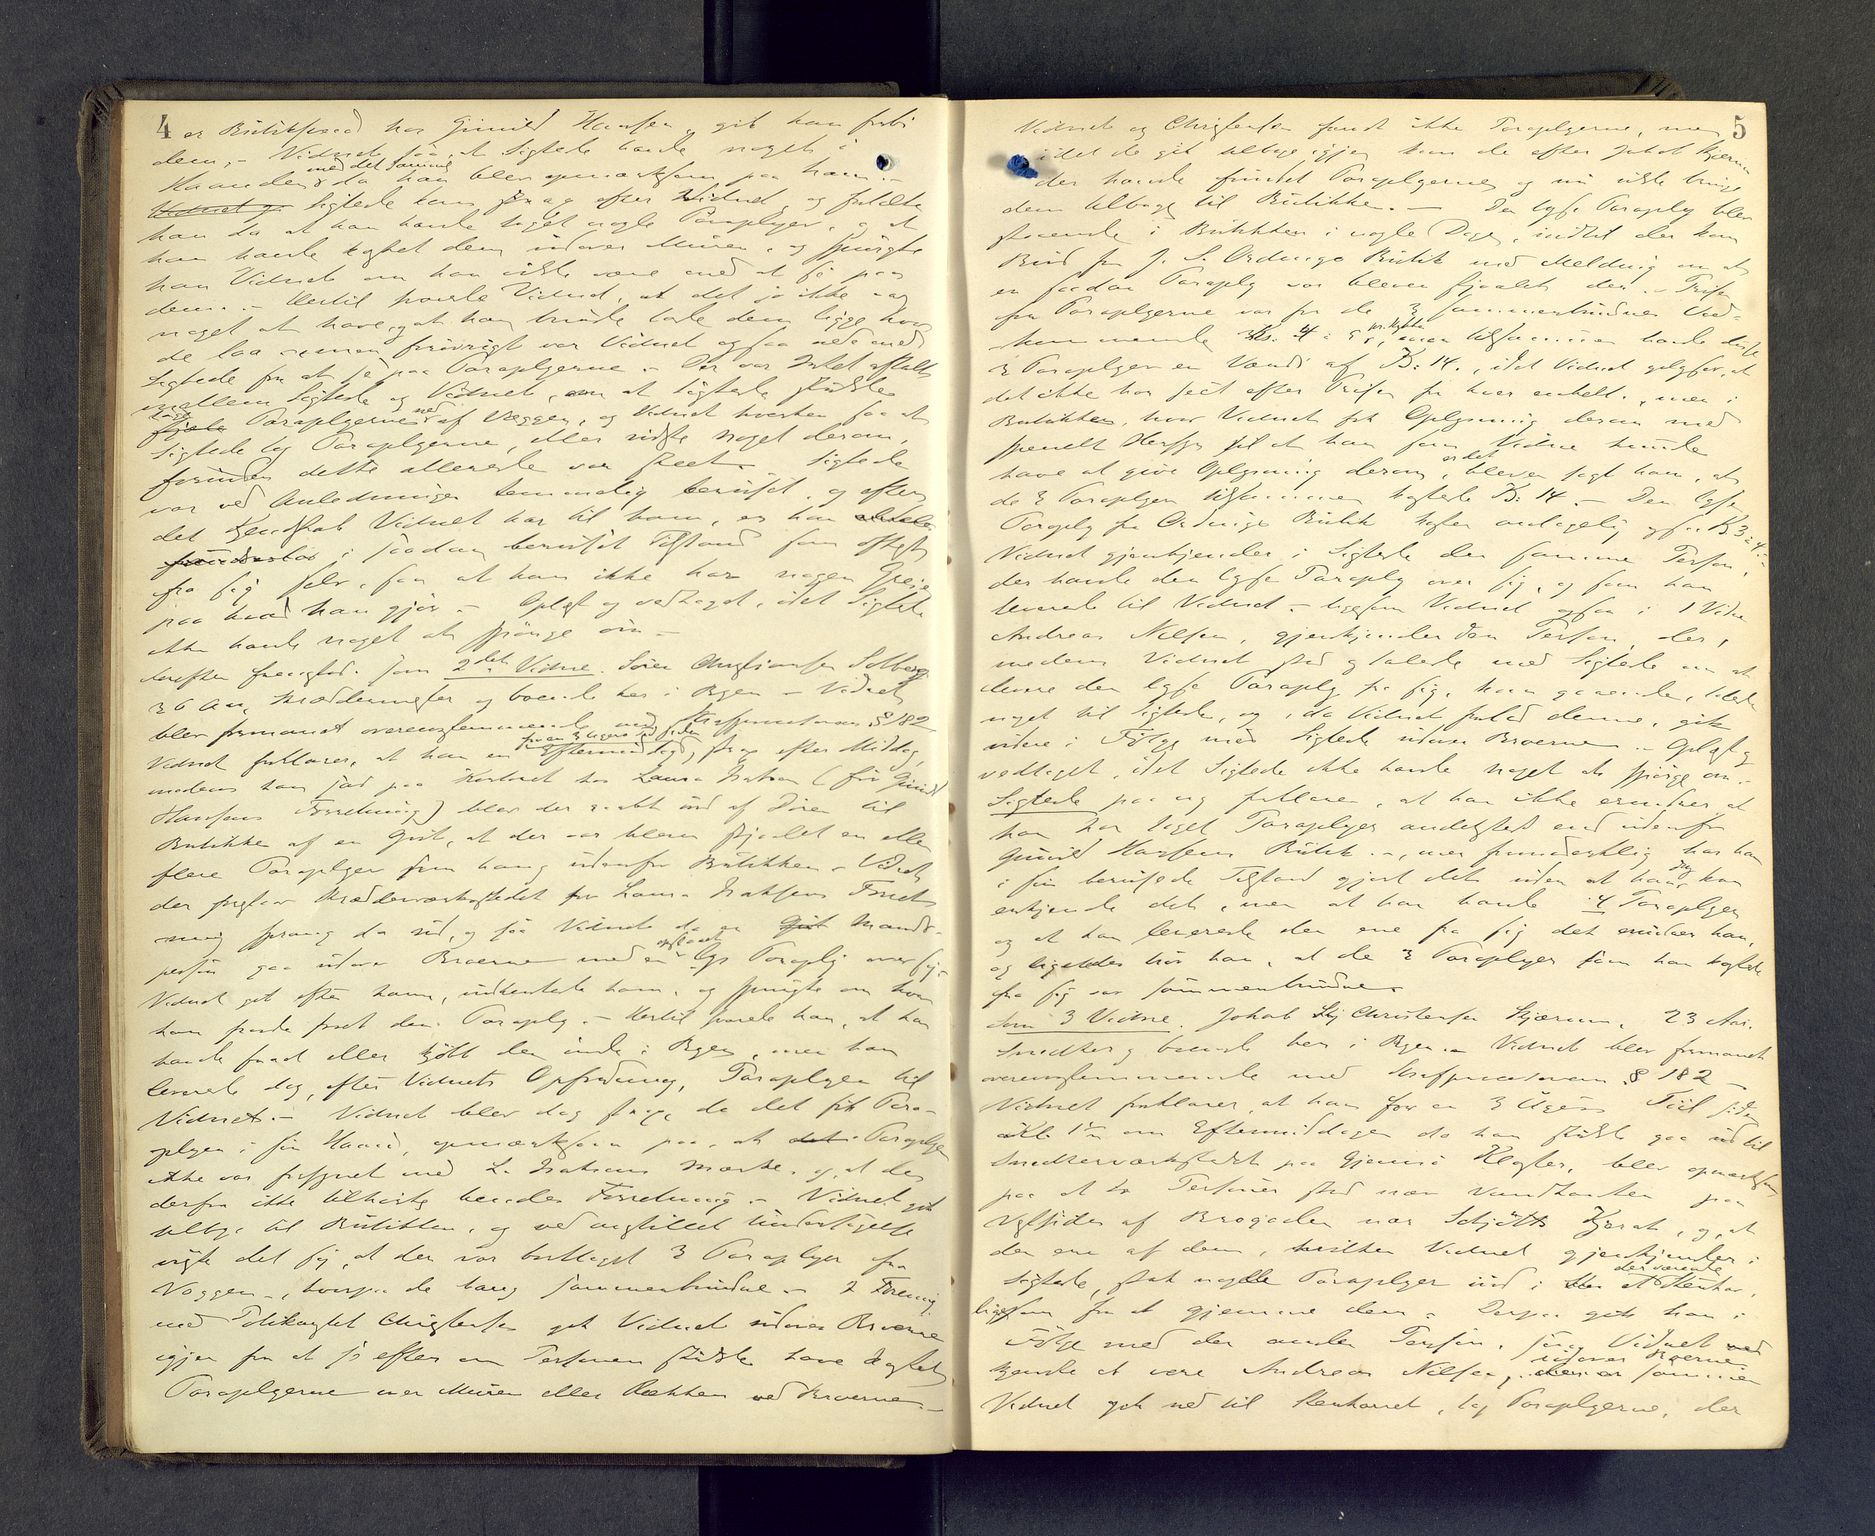 4
er Butikfrøed hos Gunild Hansen, gik han forbi
dem, - Vidnet saa, at Sigtede havde noget i
med det samme
Haanden, da han blev opmærksom paa ham. -
Vidnet gi Sigtede kom strax efter Vidnet, og fortalte
han da at han havde taget nogle Paraplyer, og at
han havde kastet dem udover Muren, og spurgte
han Vidnet om han vilde være med at se paa
dem. - Hertil svarte Vidnet, at det jo ikke var
noget at have, og at han burde lade dem ligge hvor
de laa - men forøvrigt var Vidnet ogsaa nede med
Sigtede for at se paa Paraplyerne. - Der var Intet aftalt
mellem Sigtede og Vidnet, om at Sigtede skulde
tage ned
stjæle Paraplyerne af Væggen, og Vidnet hverken saa at
Sigtede tog Paraplyerne, eller vidste noget derom,
forinden dette allerede var skeet. - Sigtede
var ved Anledningen temmelig beruset, og efter
det Kjendskab Vidnet har til ham, er han
i saadan beruset Tilstand som oftest
fra sig selv, saa at han ikke har nogen Greje
paa hvad han gjør. - Oplæst og vedtaget, idet Sigtede
ikke havde noget at spørge om -
Derefter fremstod som 2det Vidne. Søren Christiansen Solberg
26 Aar, Skræddermester og boende her i Byen - Vidnet
blev formanet overensstemmende med Strafprocesloven § 182
for en 3 Uger siden
Vidnet forklarer, at han en Eftermiddag, strax efter Middag,
medens han sad paa Værkstedet hos Laura Isaksen (før Gunild
Hansens Forretning) blev der raabt ind af Døren til
Butikken af en Gut, at der var bleven stjaalet en eller
flere Paraplyer som hang udenfor Butikken - Vidnet
der forestaar Skrædderværkstedet for Laura Isaksens Forret-
ning sprang da ud, og saa Vidnet da en Gut Mands-
opslaaet
person gaa udover Broerne med en lys Paraply over sig. -
Vidnet gik efter ham, indhentede ham, og spurgte om hvor
han havde faaet den Paraply. - Hertil svarede han, at han
havde faaet eller kjøbt den inde i Byen, men han
leverede dog, efter Vidnets Opfordring, Paraplyen til
Vidnet. - Vidnet blev dog strax, da det fik Para-
plyen i sin Haand, opmærksom paa, at det Paraplyen
ikke var forsynet med L. Isaksens Mærke, og at den
derfor ikke tilhørte hendes Forretning - Vidnet gik
tilbage til Butikken, og ved anstillet Undersøgelse
viste det sig, at der var borttaget 3 Paraplyer fra
Væggen, hvorpaa de hang sammenbundne - I Forening
med Politibetjent Christensen gik Vidnet udover Broerne
igjen for at se efter om Personen skulde have kastet
Paraplyerne over Muren eller Rækken ved Broerne. -
5
Vidnet og Christensen fandt ikke Paraplyerne, men
idet de gik tilbage igjen kom de efter Jakob Kjærum
der havde fundet Paraplyerne, og nu vilde bringe
dem tilbage til Butikken. - Den lyse Paraply blev
staaende i Butikken i nogle Dage, indtil der kom
Bud fra J. S. Ordings Butik med Melding om at
en saadan Paraply var bleven stjaalet der. - Prisen
for Paraplyerne var for de 3 sammenbundnes Ved-
pr. Stykke
kommende Kr. 4 a 5, men tilsammen havde disse
3 Paraplyer en Værdi af Kr. 14., idet Vidnet oplyser, at
det ikke har seet efter Prisen for hver enkelt, men i
Butikken, hvor Vidnet fik Oplysning derom med
specielt Hensyn til at han som Vidne kunde
er det
have at give Oplysning derom, bleven sagt ham, at
de 3 Paraplyer tilsammen kostede Kr 14. - Den lyse
Paraply fra Ordings Butik koster antagelig ogsaa Kr 3 a 4. -
Vidnet gjenkjender i Sigtede den samme Person,
der havde den lyse Paraply over sig, og som han
leverede til Vidnet. - ligesom Vidnet ogsaa i 1 Vidne
Andreas Nilsen, gjenkjender den Person, der,
medens Vidnet stod og talede med Sigtede om at
levere den lyse Paraply fra sig, kom gaaende, talede
noget til Sigtede, og, da Vidnet forlod denne, gik
videre i Følge med Sigtede udover Broerne. - Oplæst og
vedtaget, idet Sigtede ikke havde noget at spørge om. -
Sigtede paa ny forklarer, at han ikke erindrer at
han har taget Paraplyer andetsteds end udenfor
Gunild Hansens Butik. -, men sandsynlig har han
dog
i sin berusede Tilstand gjort det uden at han kan
erkjende det, men at han havde 4 Paraplyer
og at han leverede den ene fra sig det erindrer han,
og ligeledes tror han, at de 3 Paraplyer som han kastede
fra sig var sammenbundne.
Som 3 Vidne. Jakob Christensen Kjærum, 23 Aar.
Snedker, boende her i Byen. - Vidnet blev formanet
overensstemmende med Strafprocesloven § 182 -
Vidnet forklarer, at han for en 3 Ugers Tid siden
om Eftermiddagen da han skulde gaa ud til
Snedkerværkstedet paa Gjemsø Kloster, blev opmærksom
paa at to Personer stod nær Vandkanten paa
Vestsiden af Brogaden nær Schjøtts og, at
den ene af dem, hvilken Vidnet gjenkjender i
derværende
Sigtede, stak nogle Paraplyer ind i et Stenkar,
ligesom for at gjemme dem. - Derpaa gik han i
Følge med den anden Person, som Vidnet
udover Broerne.
kjendte at være Andreas Nilsen,
Vidnet gik ned til Stenkarret, tog Paraplyerne, der